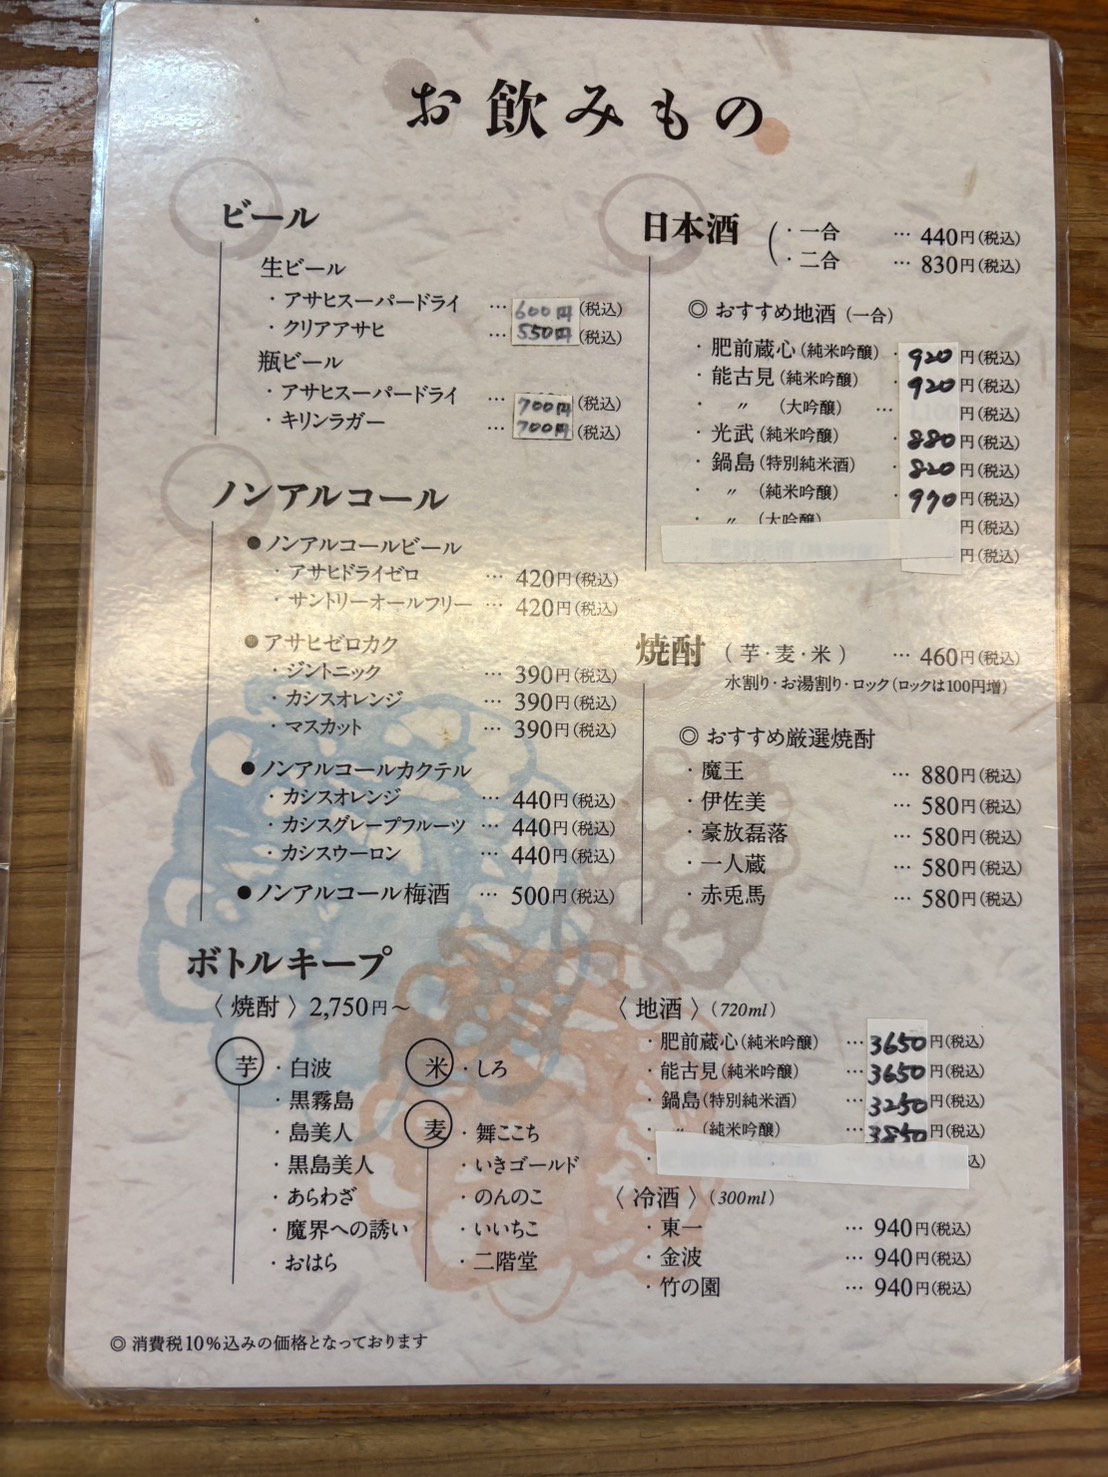 お飲みもの
ビール
生ビール
・アサヒスーパードライ … 600円 (税込)
・クリアアサヒ … 550円 (税込)
瓶ビール
・アサヒスーパードライ … 700円 (税込)
・キリンラガー … 700円 (税込)
ノンアルコール
●ノンアルコールビール
・アサヒドライゼロ … 420円(税込)
・サントリーオールフリー … 420円(税込)
●アサヒゼロカク
・ジントニック … 390円(税込)
・カシスオレンジ … 390円(税込)
・マスカット … 390円(税込)
●ノンアルコールカクテル
・カシスオレンジ … 440円(税込)
・カシスグレープフルーツ … 440円(税込)
・カシスウーロン … 440円(税込)
●ノンアルコール梅酒 … 500円(税込)
日本酒
・一合 … 440円(税込)
・二合 … 830円(税込)
◎おすすめ地酒(一合)
・肥前蔵心(純米吟醸) ・ 920 円(税込)
・能古見(純米吟醸) ・ 920 円(税込)
・ 〃 (大吟醸) … 円(税込)
・光武(純米吟醸) ・ 880 円(税込)
・鍋島(特別純米酒) ・ 820 円(税込)
・ 〃 (純米吟醸) ・ 970 円(税込)
・ 〃 (大吟醸 円(税込)
円(税込)
焼酎 (芋・麦・米) … 460円(税込)
水割り・お湯割り・ロック(ロックは100円増)
◎おすすめ厳選焼酎
・魔王 … 880円(税込)
・伊佐美 … 580円(税込)
・豪放磊落 … 580円(税込)
・一人蔵 … 580円(税込)
・赤兎馬 … 580円(税込)
ボトルキープ
〈焼酎〉2,750円～
芋 ・白波
・黒霧島
・島美人
・黒島美人
・あらわざ
・魔界への誘い
・おはら
米 ・しろ
麦 ・舞ここち
・いきゴールド
・のんのこ
・いいちこ
・二階堂
〈地酒〉(720ml)
・肥前蔵心(純米吟醸) … 3650 円(税込)
・能古見(純米吟醸) … 3650 円(税込)
・鍋島(特別純米酒) … 3250 円(税込)
・ 〃 (純米吟醸) … 3850 円(税込)
・ 込)
〈冷酒〉(300ml)
・東一 … 940円(税込)
・金波 … 940円(税込)
・竹の園 … 940円(税込)
◎消費税10%込みの価格となっております